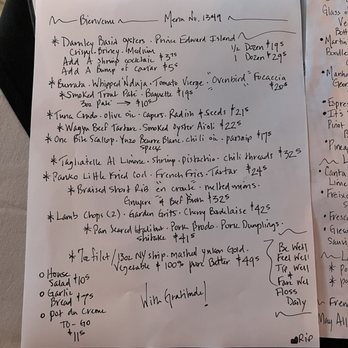 Bienvenue Menu No. 1349
* Darnley Basin oysters. Prince Edward Island
Crispy. Briney. Medium 1/2 Dozen $19s
Add A shrimp cocktail $3 1 Dozen $29s
Add A Bump of Caviar $5s
* Burrata. Whipped Nduja. Tomato Vierge "Ovenbird" Focaccia
$20s
* Smoked Trout Pate. Baguette $19s
3oz Pate → $10s
* Tuna Crudo. olive oil. Capers. Radish & Seeds $21s
* Wagyu Beef Tartare. Smoked Oyster Aioli $22s
* One Bite Scallop. Yuzu Beurre Blanc. chili oil. parsnip $17s
* Tagliatelle Al Limone. Shrimp. Pistachio. chili threads $32s
* Panko Little Fried Cod. French Fries. Tartar $24s
* Braised Short Rib en croute. melted onions.
Gruyere & Beef Broth $32s
* Lamb Chops (2). Garden Grits. Cherry Bordelaise $42s
* Pan Seared Halibut. Pork Brodo. Pork Dumplings.
shiitake $41s
* 7oz filet / 13oz NY strip. mashed yukon Gold.
Vegetable & 100% pure Butter $49s
o House
Salad $10s
o Garlic
Bread $7s
o Pot du Creme
TO-GO
$11s
With Gratitude!
Be Well
Feel Well
Tip Well
&
Fare Well
Floss
Daily
RIP
Glass